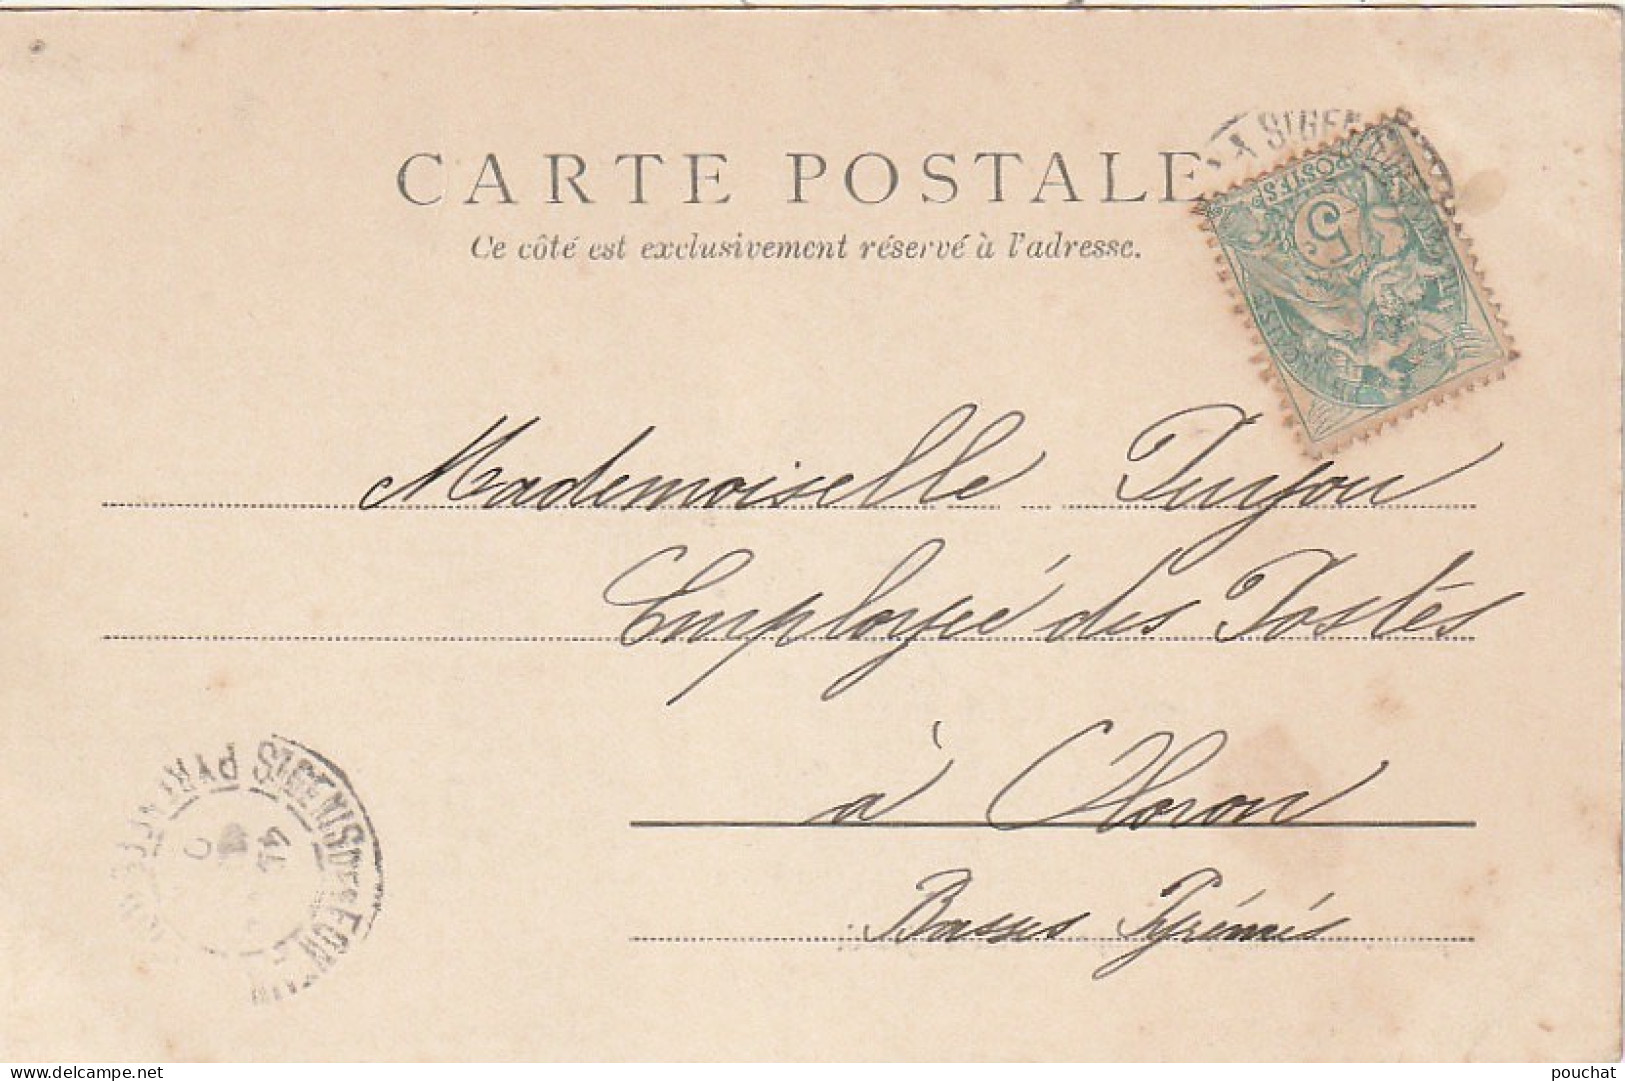 CARTE POSTALE
Ce côté est exclusivement réservé à l'adresse.
POSTES
5
Mademoiselle
Employée des Postes
à Oloron
Basses Pyrénées
PYR
ST DENIS DE PILE
www.delcampe.net
pouchat